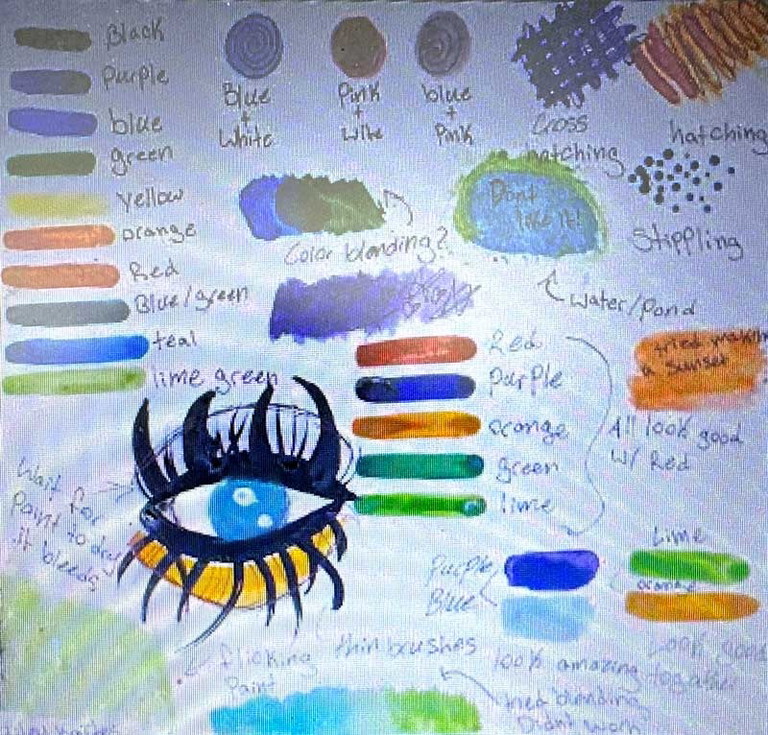 Black
Purple
blue
green
Yellow
orange
Red
Blue/green
teal
lime green
Blue
+
White
Pink
+
Wite
blue
+
Pink
Cross
hatching
hatching
Stippling
Color blanding?
Dont
like it!
Water/Pond
Red
purple
orange
green
lime
All look good
W/ Red
tried makin
a sunset
Wait for
Paint to dry
it bleeds
Purple
Blue
look amazing together
Lime
orange
Look good
flicking
Paint
thin brushes
tried blending
Didnt work